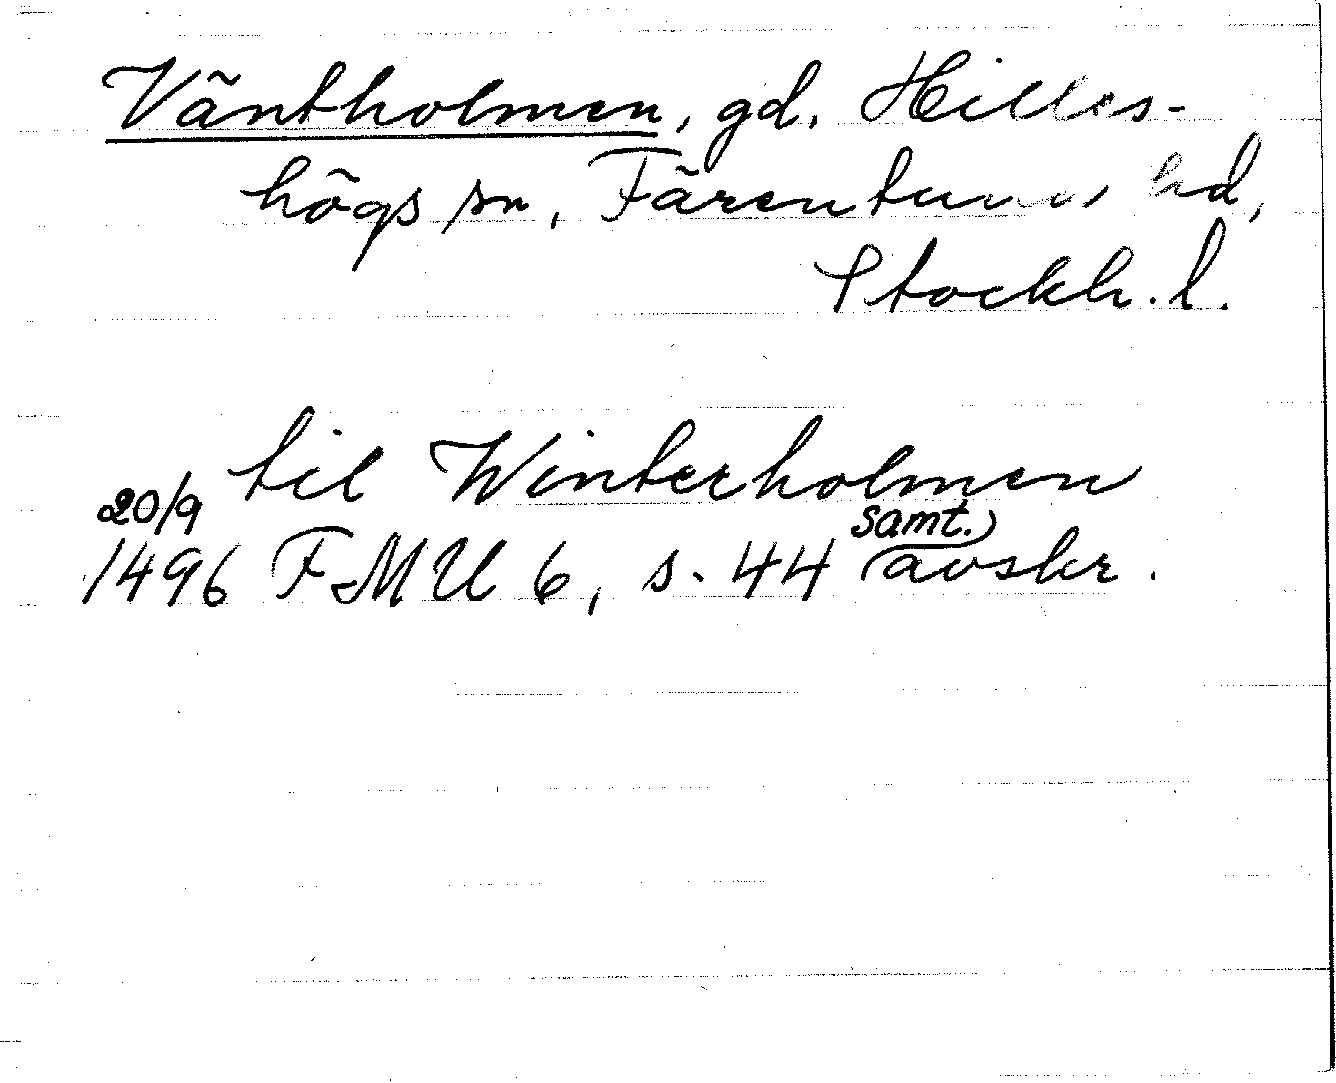 Väntholmen, gd. Hilles-
högs sn, Färentuna hd,
Stockh. l.
til Winterholmen
20/9
1496 FMU 6, s. 44 samt. avskr.